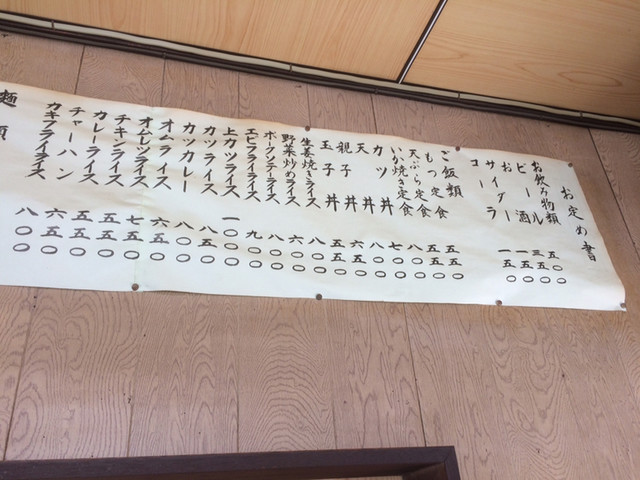 お定め書
お飲み物類
ビール 五〇〇
お酒 三五〇
サイダー 一五〇
コーラ 一五〇
ご飯類
もつ定食 五五〇
天ぷら定食 五五〇
いか焼き定食 八〇〇
カツ丼 七〇〇
天丼 八〇〇
親子丼 六五〇
玉子丼 五五〇
生姜焼きライス 八〇〇
野菜炒めライス 六〇〇
ポークソテーライス 八〇〇
エビフライライス 九〇〇
上カツライス 一〇〇〇
カツライス 八五〇
カツカレー 八〇〇
オムライス 六五〇
オムレツライス 七五〇
チキンライス 五五〇
カレーライス 五五〇
チャーハン 六五〇
カキフライライス 八〇〇
麺類